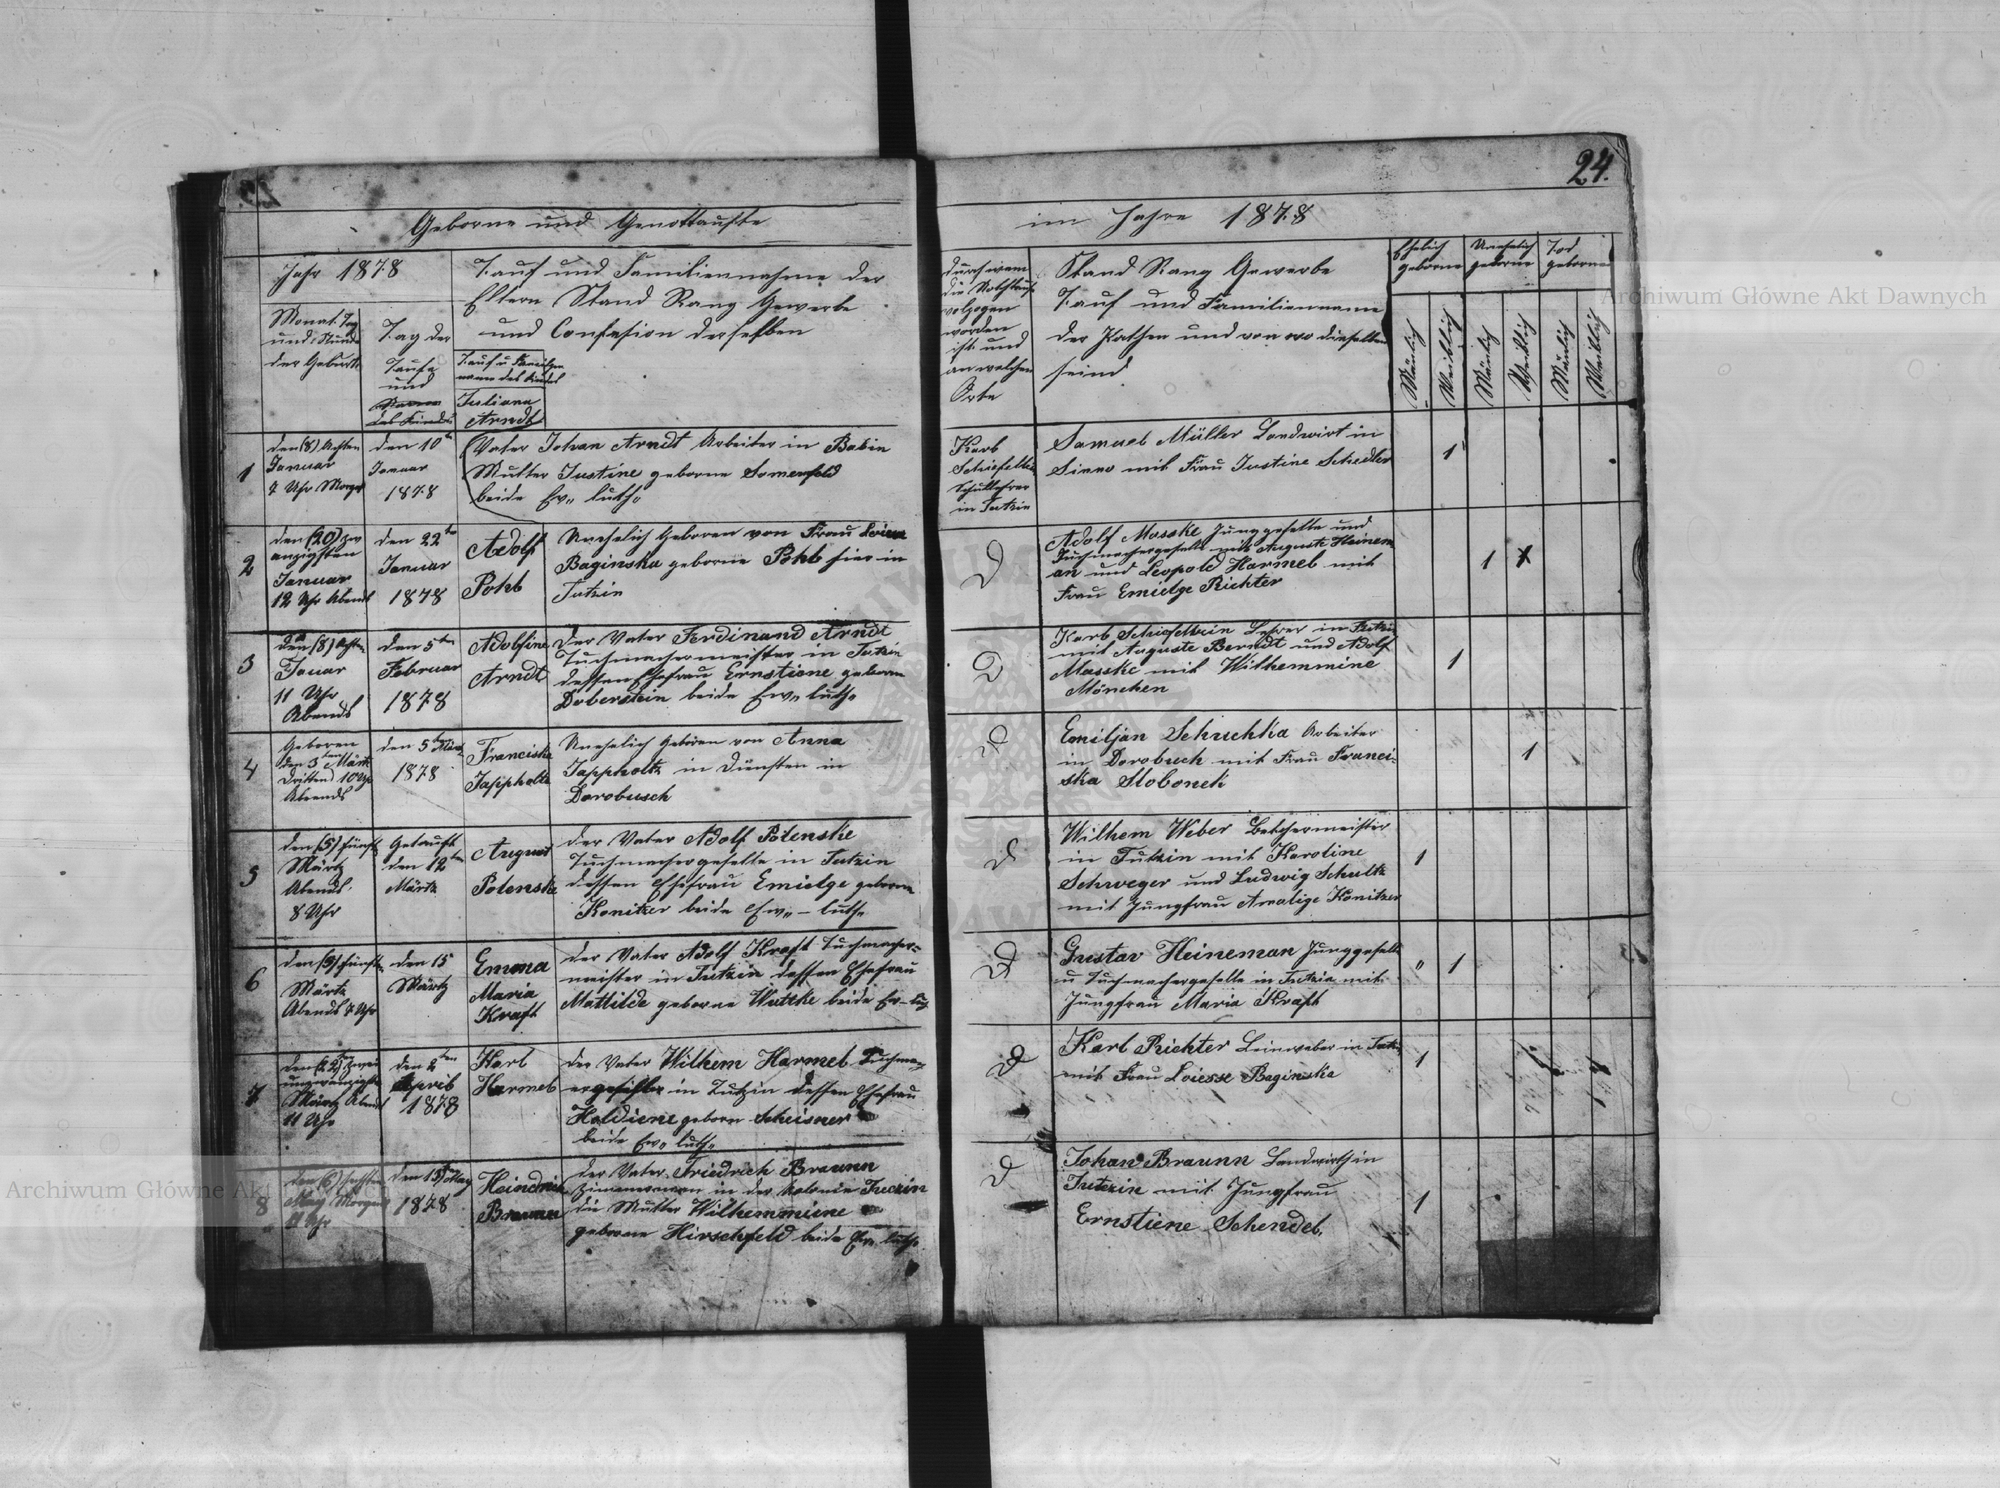 24.
Geborne und Genottaufte
im Jahre 1878
Jahr 1878
Monat Tag
und Stunde
der Geburt
Tag der
Taufe
und
des Kindes
Tauf und Familiennahme der
Eltern Stand Rang Gewerbe
und Confesion derselben
Tauf u Familien
name des Kindes
Juliana
Arndt
durch wem
die Nothtauf
volzogen
worden
ist und
an welchen
Orte
Stand Rang Gewerbe
Tauf und Familienname
der Pathen und von wo dieselben
seind
Ehelich
geborne
Unehelich
geborne
Tod
geborne
Mänlich
Weiblich
Mänlich
Weiblich
Mänlich
Weiblich
1
den (8) Achten
Januar
7 Uhr Morge
den 10ten
Januar
1878
Vater Johan Arndt Arbeiter in Babin
Mutter Justine geborne Somerfeld
beide Ev. luth.
Karl
Schiefelbein
Schullehrer
in Tutzin
Samuel Müller Landwirt in
mit Frau Justine Schedler
1
2
den (20) zw
anzigsten
Januar
12 Uhr Abend
den 22ten
Januar
1878
Adolf
Pohl
Unehelich Geboren von Frau
Baginska geborne Pohl hier in
Tutzin
Adolf Masske Junggeselle und
Tuchmachergeselle mit Auguste Heinem
an und Leopold Harmel mit
Frau Emielge Richter
1
3
den (8) Achten
Januar
11 Uhr
Abends
den 5ten
Februar
1878
Adolfine
Arndt
Der Vater Ferdinand Arndt
Tuchmachermeister in Tutzin
dessen Ehefrau Ernstiene geborne
Doberstein beide Ew. luth.
Karl Schiefelbein Lehrer in Tutzin
mit Auguste Berndt und Adolf
Masske mit Wilhemmine
Mönchen
1
4
Geboren
den 3ten Märtz
Dritten 10 Uhr
Abends
den 5ten Märtz
1878
Franciska
Jappholtz
Unehelich Geboren von Anna
Jappholtz in Diensten in
Dorobusch
Emiljan Schuschka Arbeiter
in Dorobuch mit Frau Franci-
ska Slobonek
1
5
den (5) fünft
Märtz
Abends
8 Uhr
Getauft
den 12ten
Märtz
August
Polenske
der Vater Adolf Polenske
Tuchmachergeselle in Tutzin
dessen Ehefrau Emielge geborne
Konitzer beide Ew. - luth.
Wilhem Weber
in Tutzin mit Karoline
Schweger und Ludwig Schultz
mit Jungfrau Amalige Konitzer
1
6
den (5) fünften
Märtz
Abends 7 Uhr
den 15
Märtz
Emma
Maria
Kraft
der Vater Adolf Kraft Tuchmacher-
meister in Tutzin dessen Ehefrau
Mattilde geborne Wuttke beide Ev-luth
Gustav Heineman Junggeselle
u Tuchmachergeselle in Tutzin mit
Jungfrau Maria Kraft
1
7
den (22) zwei
undzwanzigsten
Märtz Abend
11 Uhr
den 2ten
April
1878
Karl
Harmel
der Vater Wilhem Harmel Tuchma-
in Tutzin dessen Ehefrau
Holdiene geborn Scheisner
beide Ew. luth.
Karl Richter Leinweber in Tutzin
mit Frau Loiesse Baginska
1
8
den (6) sechsten
May Morgens
Uhr
May
1878
Heindrich
Braunn
der Vater Friedrich Braunn
Zimmermann in der Kolonie
die Mutter Wilhemmiene
geborne Hirschfeld beide Ew. luth.
Johan Braunn Landwirth in
Tutzin mit Jungfrau
Ernstiene Schendel.
1
Archiwum Główne Akt Dawnych
Archiwum Główne Akt Dawnych